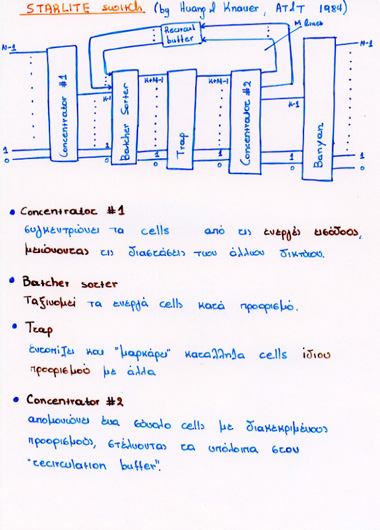 STARLITE switch (by Huang & Knauer, AT&T 1984)
Recircul. buffer
M lines
N-1
1
0
Concentrator #1
K-1
1
0
Batcher Sorter
K+M-1
1
0
Trap
K+M-1
1
0
Concentrator #2
K-1
1
0
Banyan
N-1
1
0
• Concentrator #1
συγκεντρώνει τα cells από τις ενεργές εισόδους,
μειώνοντας τις διαστάσεις των άλλων δικτύων.
• Batcher sorter
Ταξινομεί τα ενεργά cells κατά προορισμό.
• Trap
εντοπίζει και "μαρκάρει" κατάλληλα cells ίδιου
προορισμού με άλλα
• Concentrator #2
απομονώνει ένα σύνολο cells με διακεκριμένους
προορισμούς, στέλνοντας τα υπόλοιπα στον
"recirculation buffer".